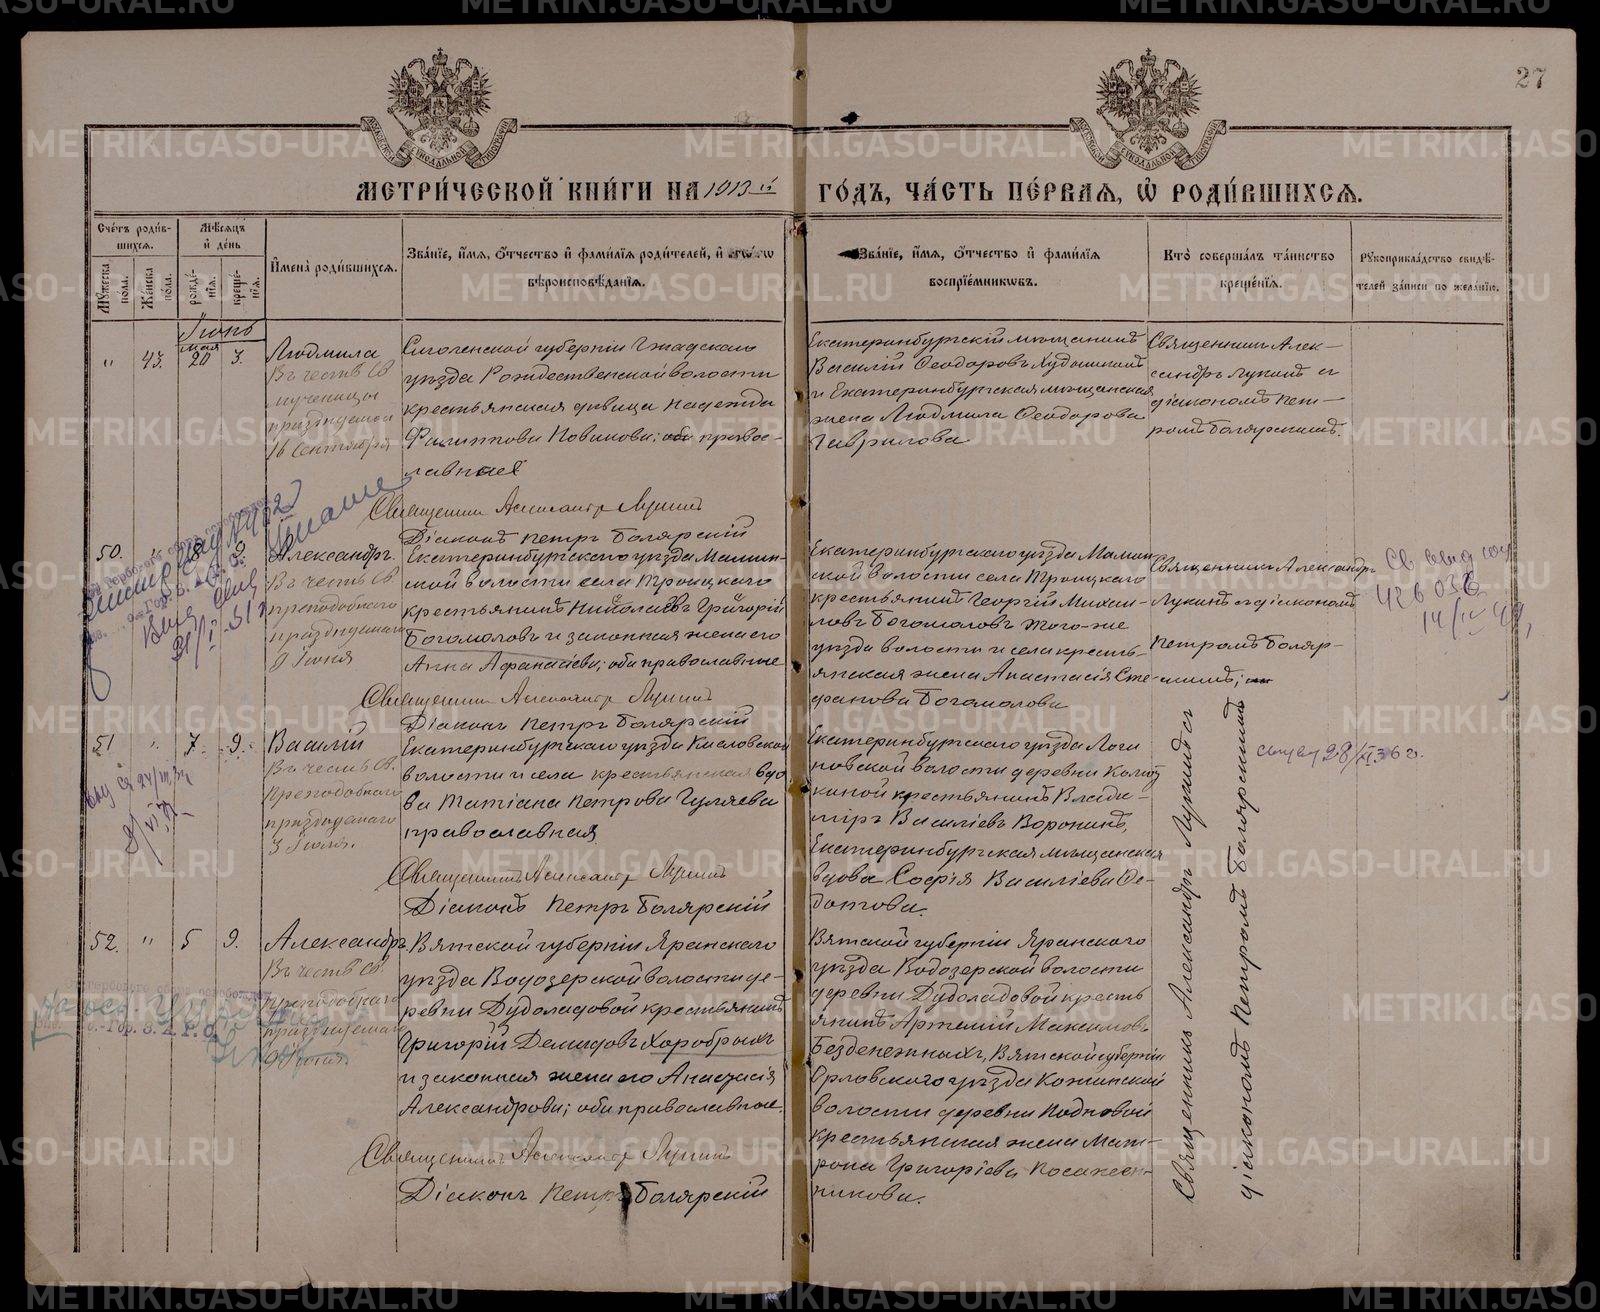 27
МЕТРИ́ЧЕСКОЙ КНИ́ГИ НА 1913 й ГО́ДЪ, ЧА́СТЬ ПЕ́РВАЯ, Ѡ РОДИ́ВШИХСЯ.
Сче́тъ роди́вшихся.
Му́жеска по́ла.
Же́нска по́ла.
Мѣ́сяцъ и де́нь
рожде́нїя.
креще́нїя.
И҆мена̀ роди́вшихся.
Зва́нїе, и҆́мя, ѻ҆́тчество и҆ фами́лїя роди́телей, и҆
вѣроисповѣ́данїя.
Зва́нїе, и҆́мя, ѻ҆́тчество и҆ фами́лїя
воспрїе́мниковъ.
Кто̀ соверша́лъ та́инство
креще́нїя.
Рꙋкоприкла́дство свидѣ́-
телей за́писи по жела́нїю.
Іюнь
"
43.
мая
20
3.
Людмила
Въ честь Св.
мученицы
празднуемой
16 Сентября
Смоленской губерніи Гжадскаго
уѣзда Рождественской волости
крестьянская дѣвица Надежда
Филиппова Новикова; православная
Священникъ Александръ Лукинъ
Діаконъ Петръ Болярскій
Екатеринбургскій мѣщанинъ
Василій Ѳеодоровъ Худошинъ
и Екатеринбургская мѣщанская
жена Людмила Ѳеодорова
Гаврилова
Священникъ Алек-
сандръ Лукинъ съ
діакономъ Пет-
ромъ Болярскимъ.
50.
"
8
9.
Александръ.
Въ честь Св.
преподобнаго
празднуемаго
9 Іюня
Екатеринбургскаго уѣзда Мамин-
ской волости села Троицкаго
крестьянинъ Николаевъ Григорій
Богомоловъ и законная жена его
Анна Афанасіева; оба православные
Священникъ Александръ Лукинъ
Діаконъ Петръ Болярскій
Екатеринбургскаго уѣзда Мамин-
ской волости села Троицкаго
крестьянинъ Георгій Михаи-
ловъ Богомоловъ того-же
уѣзда волости и села кресть-
янская жена Анастасія Сте-
фанова Богомолова
Священникъ Александръ
Лукинъ съ діакономъ
Петромъ Боляр-
скимъ;
14/IV 49
51
"
7.
9.
Василій
Въ честь Св.
Преподобнаго
празднуемаго
3 Іюля.
Екатеринбургскаго уѣзда Кисловской
волости и села крестьянская вдо
ва Татіана Петрова Гуляева
православная
Священникъ Александръ Лукинъ
Діаконъ Петръ Болярскій
Екатеринбургскаго уѣзда Логи
новской волости деревни
крестьянинъ Влади-
міръ Василіевъ Воронинъ,
Екатеринбургская мѣщанская
вдова Софія Василіева Ѳе-
дотова.
Священникъ Александръ Лукинъ съ
діакономъ Петромъ Болярскимъ
52.
"
5
9.
Александръ.
Въ честь Св.
преподобнаго
празднуемаго
9 Іюня.
Вятской губерніи Яранскаго
уѣзда Водозерской волости де-
ревни Дудоладовой крестьянинъ
Григорій Демидовъ Хоробрыхъ
и законная жена его Анастасія
Александрова; оба православные.
Священникъ Александръ Лукинъ
Діаконъ Петръ Болярскій
Вятской губерніи Яранскаго
уѣзда Водозерской волости
деревни Дудоладовой кресть
янинъ Артемій Максимовъ
Безденежныхъ, Вятской губерніи
Орловскаго уѣзда
волости деревни
крестьянская жена Мат-
рона Григоріева
METRIKI.GASO-URAL.RU